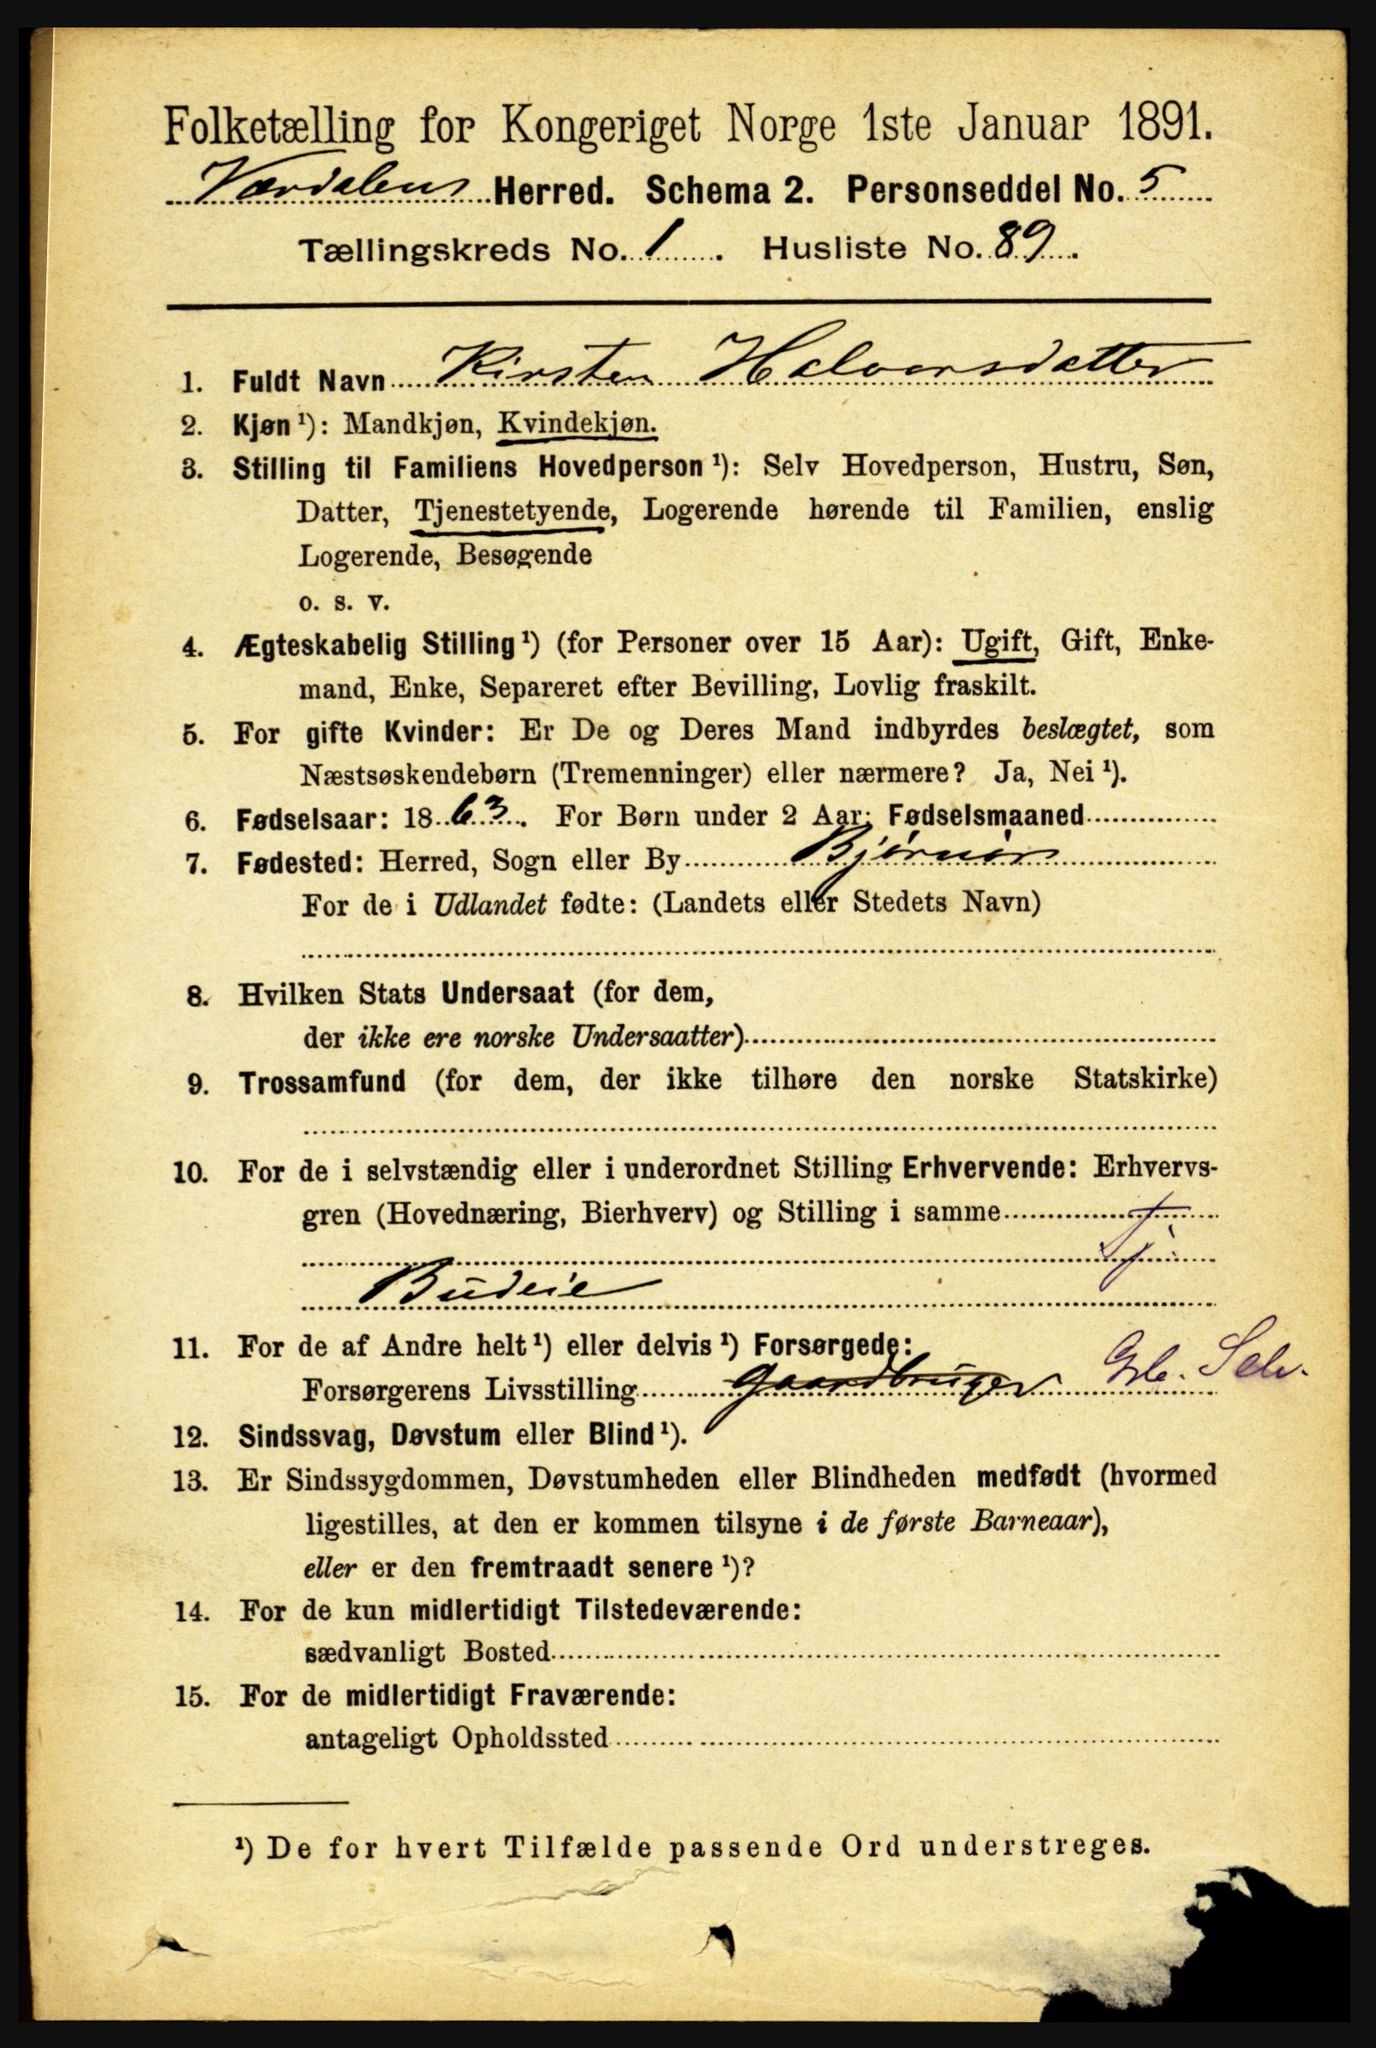 Folketælling for Kongeriget Norge 1ste Januar 1891.
Værdalens Herred. Schema 2. Personseddel No. 5
Tællingskreds No. 1. Husliste No. 89.
1. Fuldt Navn Kirsten Halvorsdatter
2. Kjøn ¹): Mandkjøn, Kvindekjøn.
3. Stilling til Familiens Hovedperson ¹): Selv Hovedperson, Hustru, Søn,
Datter, Tjenestetyende, Logerende hørende til Familien, enslig
Logerende, Besøgende
o. s. v.
4. Ægteskabelig Stilling ¹) (for Personer over 15 Aar): Ugift, Gift, Enke-
mand, Enke, Separeret efter Bevilling, Lovlig fraskilt.
5. For gifte Kvinder: Er De og Deres Mand indbyrdes beslægtet, som
Næstsøskendebørn (Tremenninger) eller nærmere? Ja, Nei ¹).
6. Fødselsaar: 1863. For Børn under 2 Aar: Fødselsmaaned
7. Fødested: Herred, Sogn eller By Bjørnør
For de i Udlandet fødte: (Landets eller Stedets Navn)
8. Hvilken Stats Undersaat (for dem,
der ikke ere norske Undersaatter)
9. Trossamfund (for dem, der ikke tilhøre den norske Statskirke)
10. For de i selvstændig eller i underordnet Stilling Erhvervende: Erhvervs-
gren (Hovednæring, Bierhverv) og Stilling i samme
Tj.
Budeie
11. For de af Andre helt ¹) eller delvis ¹) Forsørgede:
Forsørgerens Livsstilling Gaardbruger Grb. Selv.
12. Sindssvag, Døvstum eller Blind ¹).
13. Er Sindssygdommen, Døvstumheden eller Blindheden medfødt (hvormed
ligestilles, at den er kommen tilsyne i de første Barneaar),
eller er den fremtraadt senere ¹)?
14. For de kun midlertidigt Tilstedeværende:
sædvanligt Bosted
15. For de midlertidigt Fraværende:
antageligt Opholdssted
¹) De for hvert Tilfælde passende Ord understreges.